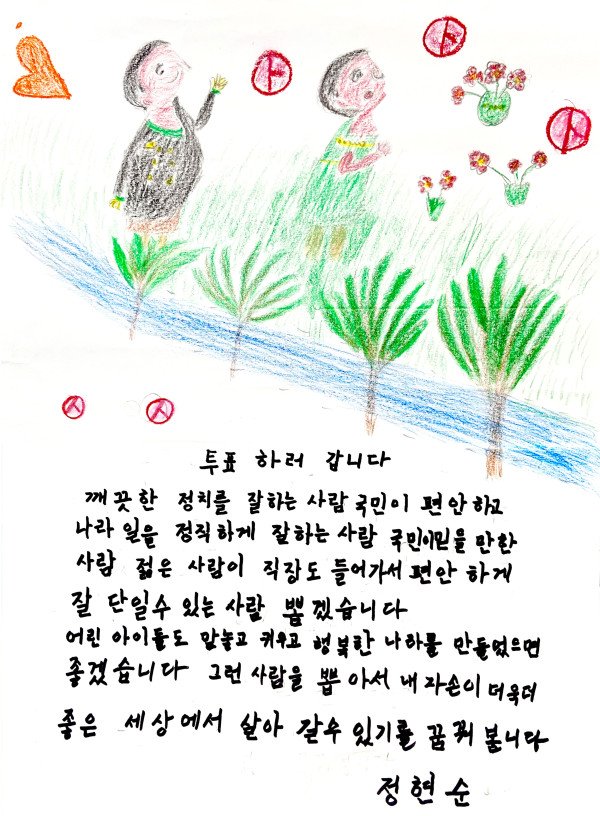 투표 하러 갑니다
깨끗한 정치를 잘하는 사람 국민이 편안하고
나라 일을 정직하게 잘하는 사람 국민이믿을 만한
사람 젊은 사람이 직장도 들어가서 편안 하게
잘 단일수 있는 사람 뽑겠습니다
어린 아이들도 맡놓고 키우고 행복한 나하를 만들었으면
좋겠습니다 그런 사람을 뽑아서 내자손이 더욱더
좋은 세상에서 살아 갈수 있기를 꿈꿔 봅니다
정현순